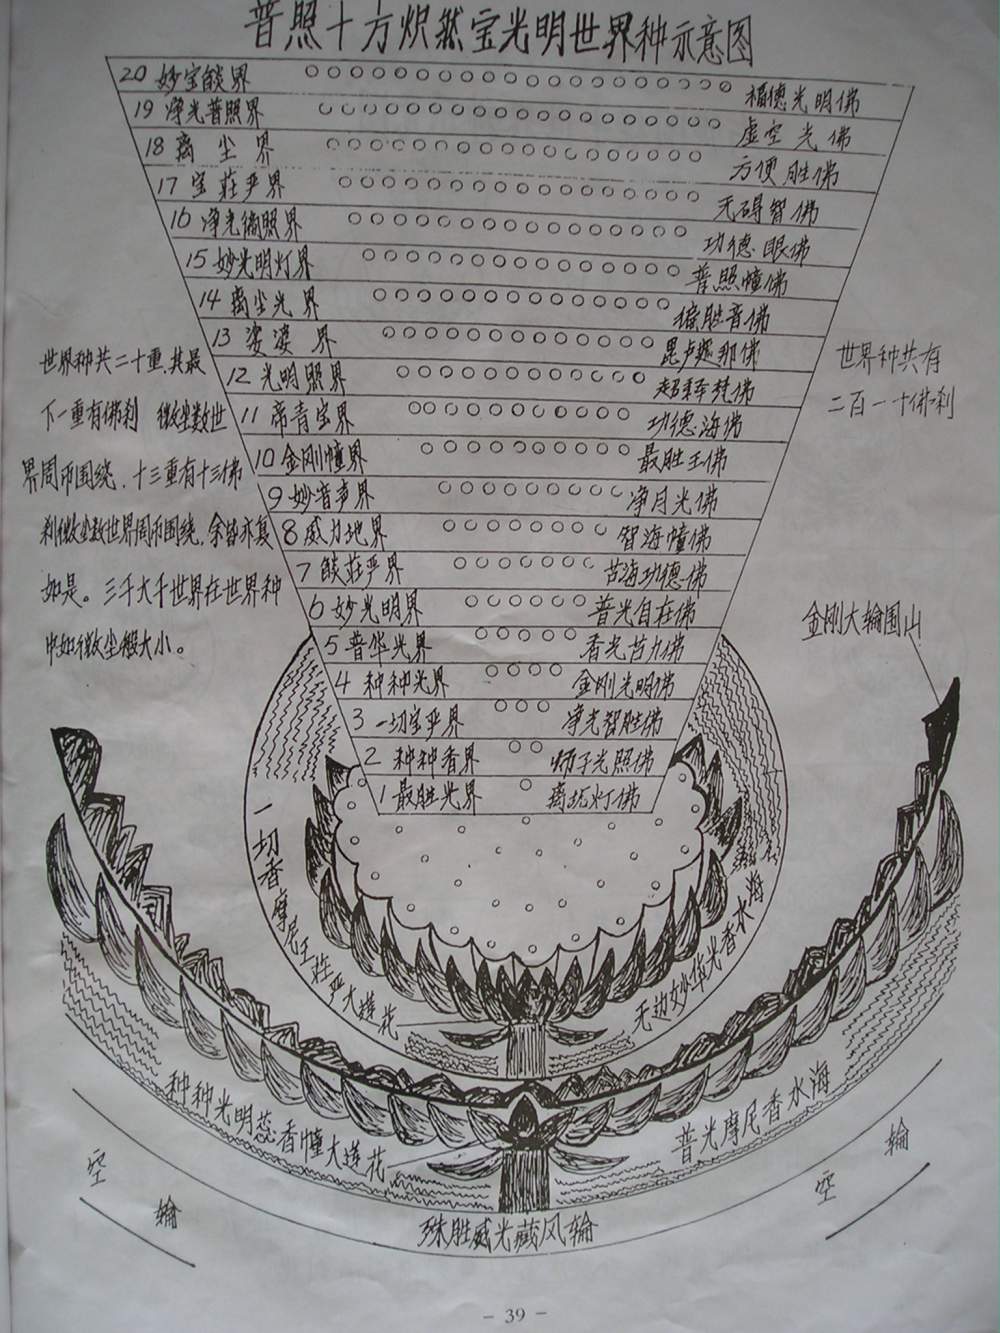 普照十方炽然宝光明世界种示意图
20 妙宝燄界 福德光明佛
19 净光普照界 虚空光佛
18 离尘界 方便胜佛
17 宝莊严界 无碍智佛
16 净光徧照界 功德眼佛
15 妙光明灯界 普照幢佛
14 离尘光界 徧胜音佛
13 娑婆界 毘卢遮那佛
12 光明照界 超释梵佛
11 帝青宝界 功德海佛
10 金刚幢界 最胜王佛
9 妙音声界 净月光佛
8 威力地界 智海幢佛
7 燄莊严界 功德佛
6 妙光明界 普光自在佛
5 普华光界 香光力佛
4 种种光界 金刚光明佛
3 一切宝严界 净光智胜佛
2 种种香界 师子光照佛
1 最胜光界 离垢灯佛
世界种共二十重,其最
下一重有佛刹 微尘数世
界周帀围绕.十三重有十三佛
刹微尘数世界周帀围绕,余皆亦复
如是。三千大千世界在世界种
中如微尘般大小。
世界种共有
二百一十佛刹
金刚大轮围山
一切香摩尼王莊严大莲花
无边妙华光香水海
种种光明蕊香幢大莲花
普光摩尼香水海
空轮
空轮
殊胜威光藏风轮
- 39 -